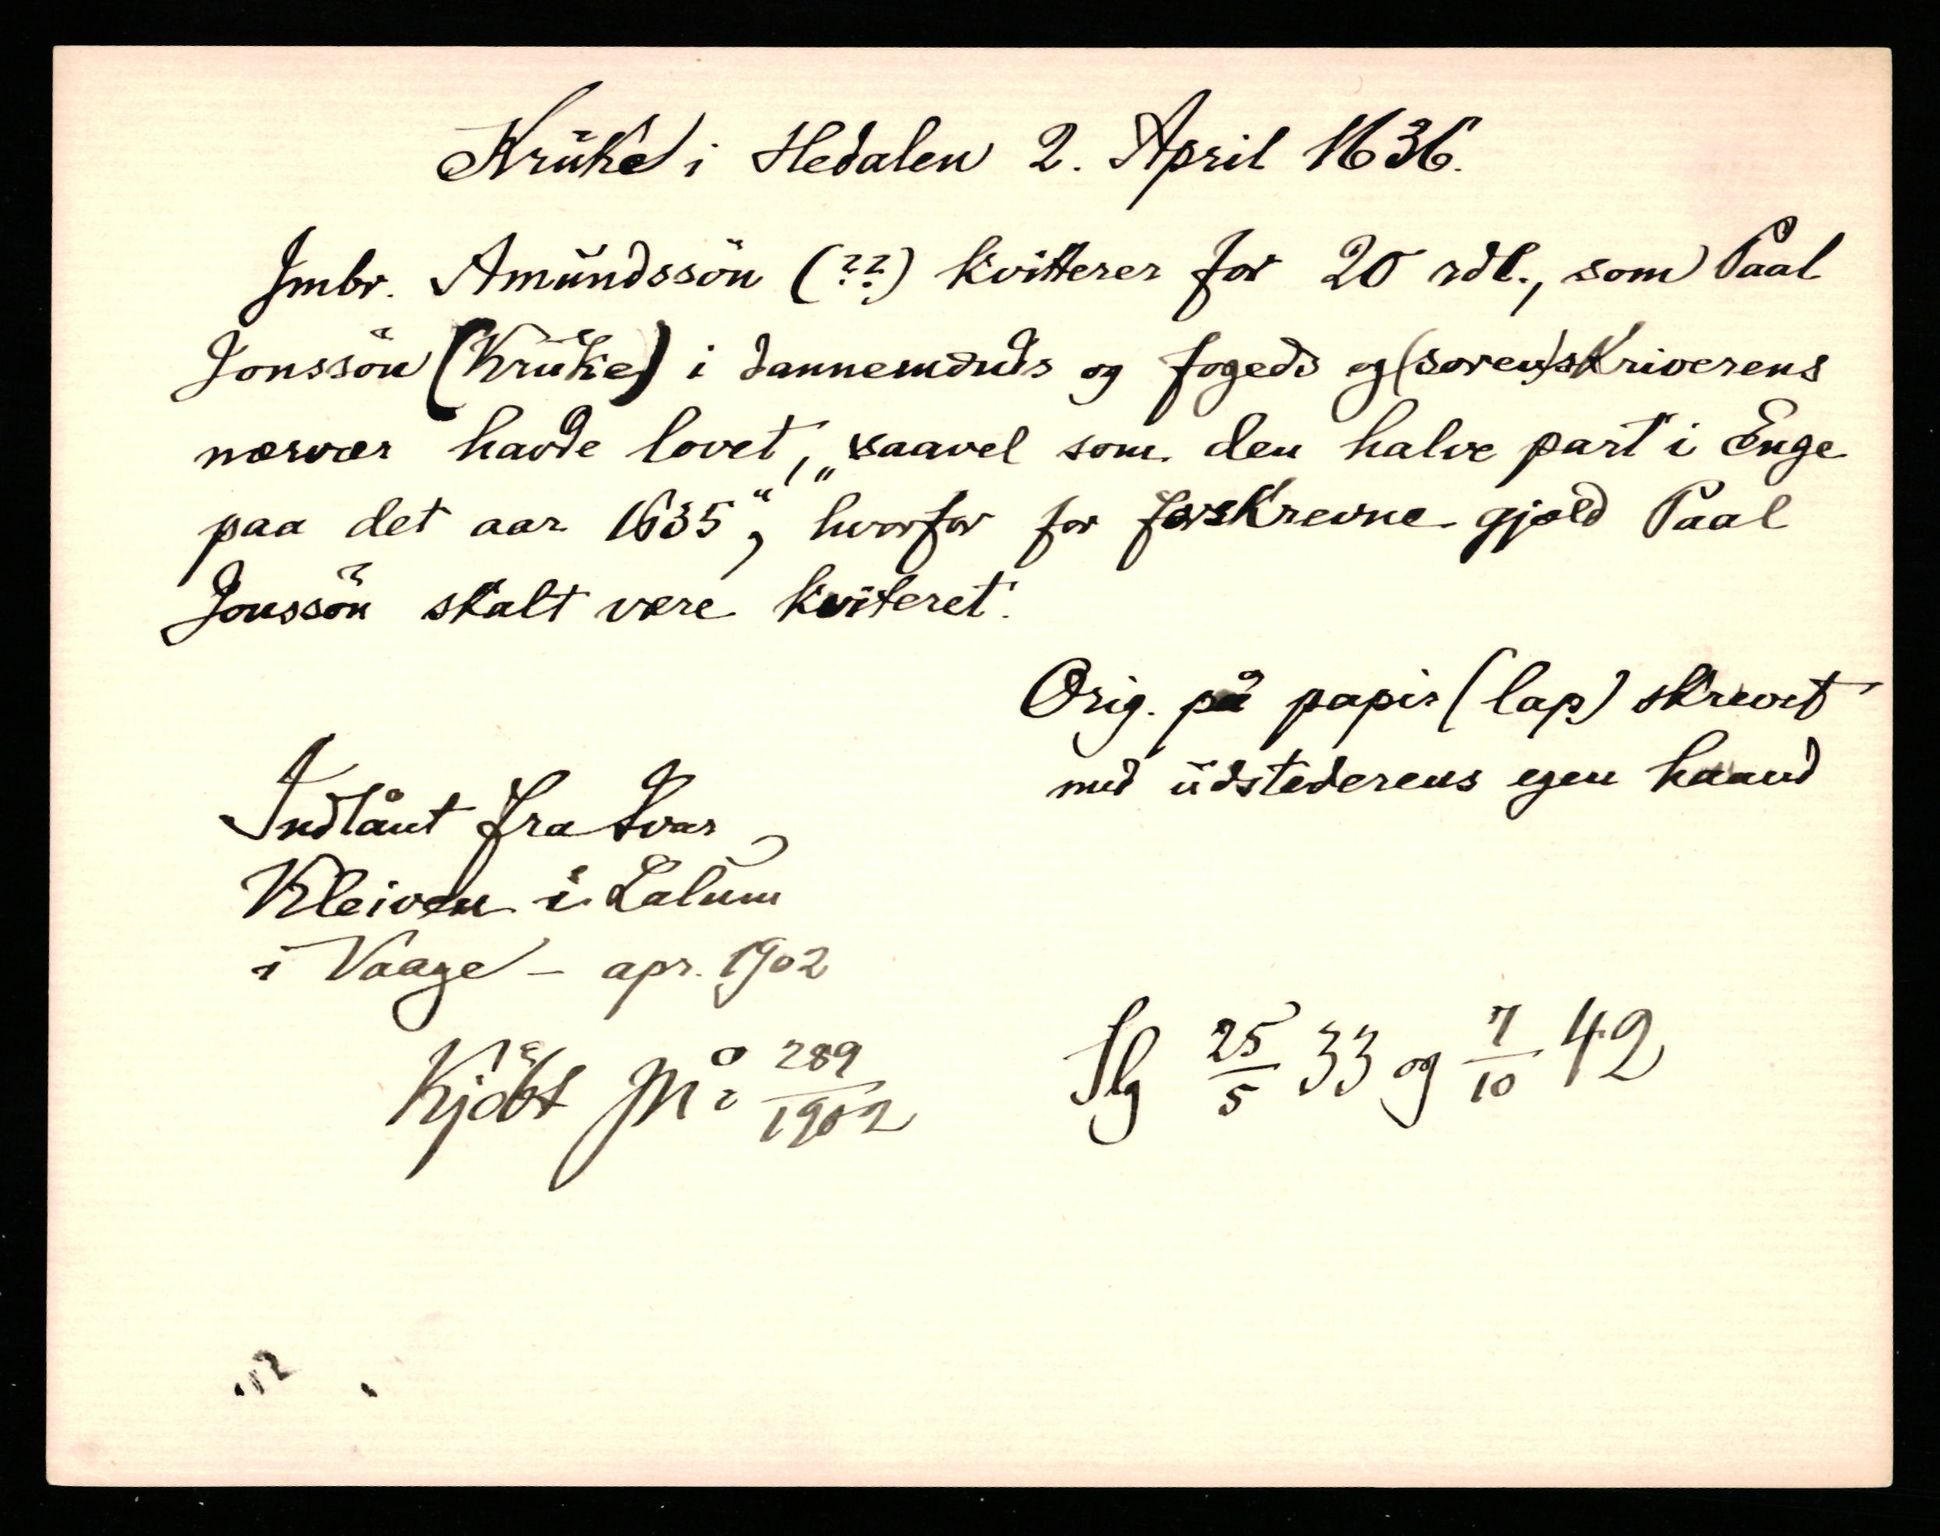 Kruke i Hedalen 2. April 1636.
Imbr. Amundssön (??) kvitterer for 20 rdl., som Paal
Jonssön (Kruke) i dannemænds og fogeds og (soren)skriverens
nærvær havde lovet, „saavel som den halve part i Enge
paa det aar 1635“, hvorfor for forskrevne gjæld Paal
Jonssön skalt være kviteret.
Orig. på papir (lap) skrevet
med udstederens egen haand
Indlånt fra Ivar
Kleiven i Lalum
i Vaage – apr. 1902
Kjöbt 289/1902
25/5 33 og 7/10 42